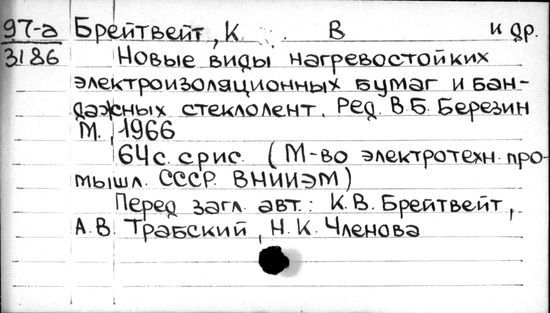 97-а Брейтвейт, К В и др.
3186 Новые виды нагревостойких
электроизоляционных бумаг и бан-
дажных стеклолент. Ред. В.Б. Березин
М., 1966
64 с. с рис. (М-во электротехн. про-
мышл. СССР. ВНИИЭМ)
Перед загл. авт.: К.В. Брейтвейт,
А.В. Трабский, Н.К. Членова